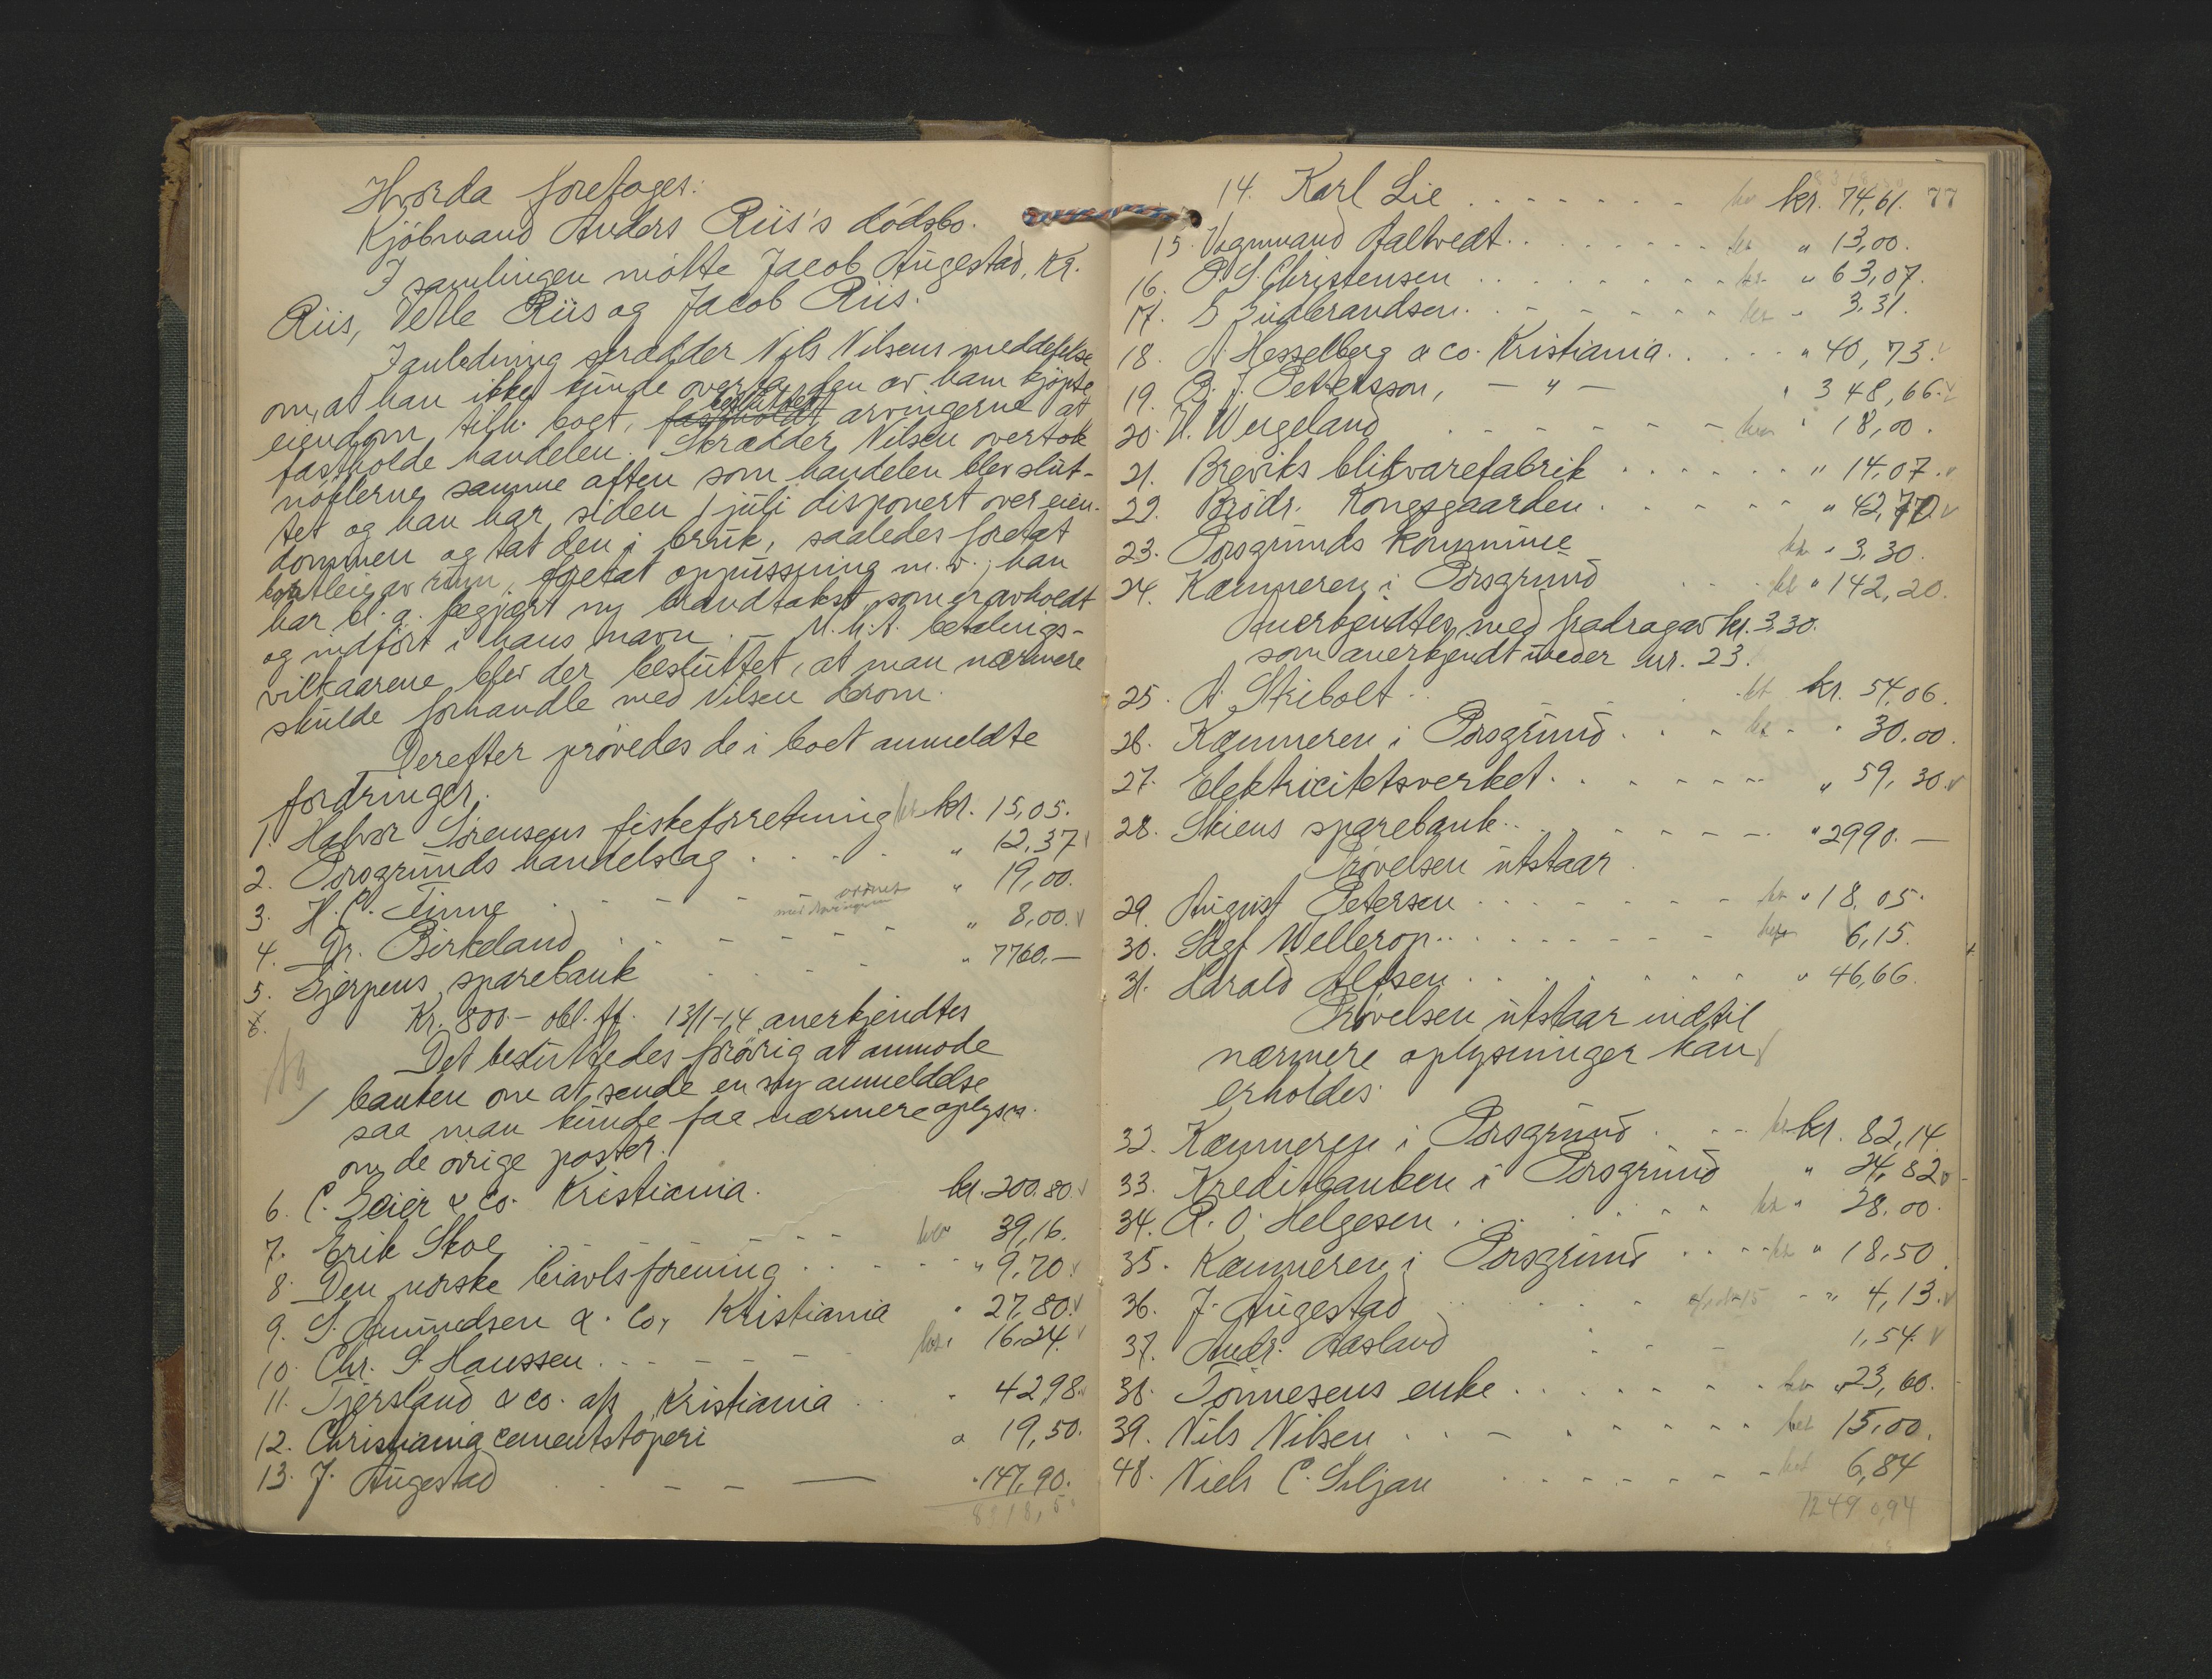 Hvorda foretages:
Kjöbmand Anders Riis's dödsbo.
I samlingen mötte Jacob Augestad, Kr.
Riis, Velle Riis og Jacob Riis.
I anledning skrædder Nils Nilsens meddelelse
om, at han ikke kunde overta den av ham kjöpte
eiendom tilh. boet, fastholdt besluttet arvingerne at
fastholde handelen. Skrædder Nilsen overtok
nöklerne samme aften som handelen blev slut-
tet og han har siden 1 juli disponert over eien-
dommen og tat den i bruk, saaledes foretat
bortleie av rum, foretat oppussning m.v.; han
har bl. a. begjært ny brandtakst, som er avholdt
og indfört i hans navn. – M.h.t. betalings-
vilkaarene blev der besluttet, at man nærmere
skulde forhandle med Nilsen derom.
Derefter prövedes de i boet anmeldte
fordringer.
1. Halvor Sörensens fiskeforretning kr. 15,05.
2. Porsgrunds handelslag . . . . " 12,37
3. H. C. Finne . . . . " 19,00.
ordnet
4. Dr. Birkeland . . . . " 8,00.
5. Gjerpens sparebank . . . . " 7760.—
6.
Kr. 800.– obl. ff. 13/1-14 anerkjendtes
Det besluttedes forövrig at anmode
banken om at sende en ny anmeldelse
saa man kunde faa nærmere oplysn.
om de övrige poster.
6. C. Geier & Co. Kristiania. kr. 200.80.
7. Erik Skoe . . . . 39,16.
8. Den norske biavlsforening . . . . " 9,70.
9. S. Amundsen & Co, Kristiania " 27,80.
10. Chr. S. Hanssen . . . . 16.24.
11. Tjersland & co. a/s Kristiania . . " 42,98.
12. Christiania cementstöperi " 19,50.
13. J. Augestad . . . . " 147,90.
14. Karl Lie . . . . kr. 74,61. 77
15. Vognmand Aaltvedt . . . . " 13,00.
16. P. S. Christensen . . . . " 63,07.
17. S Gudbrandsen . . . . " 3.31.
18. A. Hesselberg & co. Kristiania . . . . " 40,73.
19. B. J. Pettersson, — " — " 348,66.
20. H. Wergeland . . . . " 18,00.
21. Breviks blikvarefabrik . . . . " 14,07.
22. Brödr. Kongsgaarden . . . . " 42,70.
23. Porsgrunds kommune " 3,30.
24. Kæmneren i Porsgrund . . " 142,20.
Anerkjendtes med fradrag av kr. 3.30.
som anerkjendt under nr. 23.
25. A. Stribolt . . kr. 54,06.
26. Kæmneren i Porsgrund . . . . " 30.00.
27. Elektricitetsverket . . . . " 59,30.
28. Skiens sparebank . . . . " 2990.—
Prövelsen utstaar
29. August Petersen . . . . " 18.05.
30. Sdgf. Wellerop . . . . 6,15.
31. Harald Alfsen . . . . " 46,66.
Prövelsen utstaar indtil
nærmere oplysninger kan
erholdes.
32. Kæmneren i Porsgrund . . . kr. 82,14.
33. Kreditbanken i Porsgrund " 24,82
34. R. O. Helgesen . . . . " 28.00.
35. Kæmneren i Porsgrund . . . . " 18,50.
36. J. Augestad . . . . " 4,13.
37. Andr. Aasland . . . . 1,54.
38. Tönnesens enke . . . . " 23,60.
39. Nils Nilsen . . . . 15,00.
40. Niels C. Siljan . . . . 6,84
12490,94